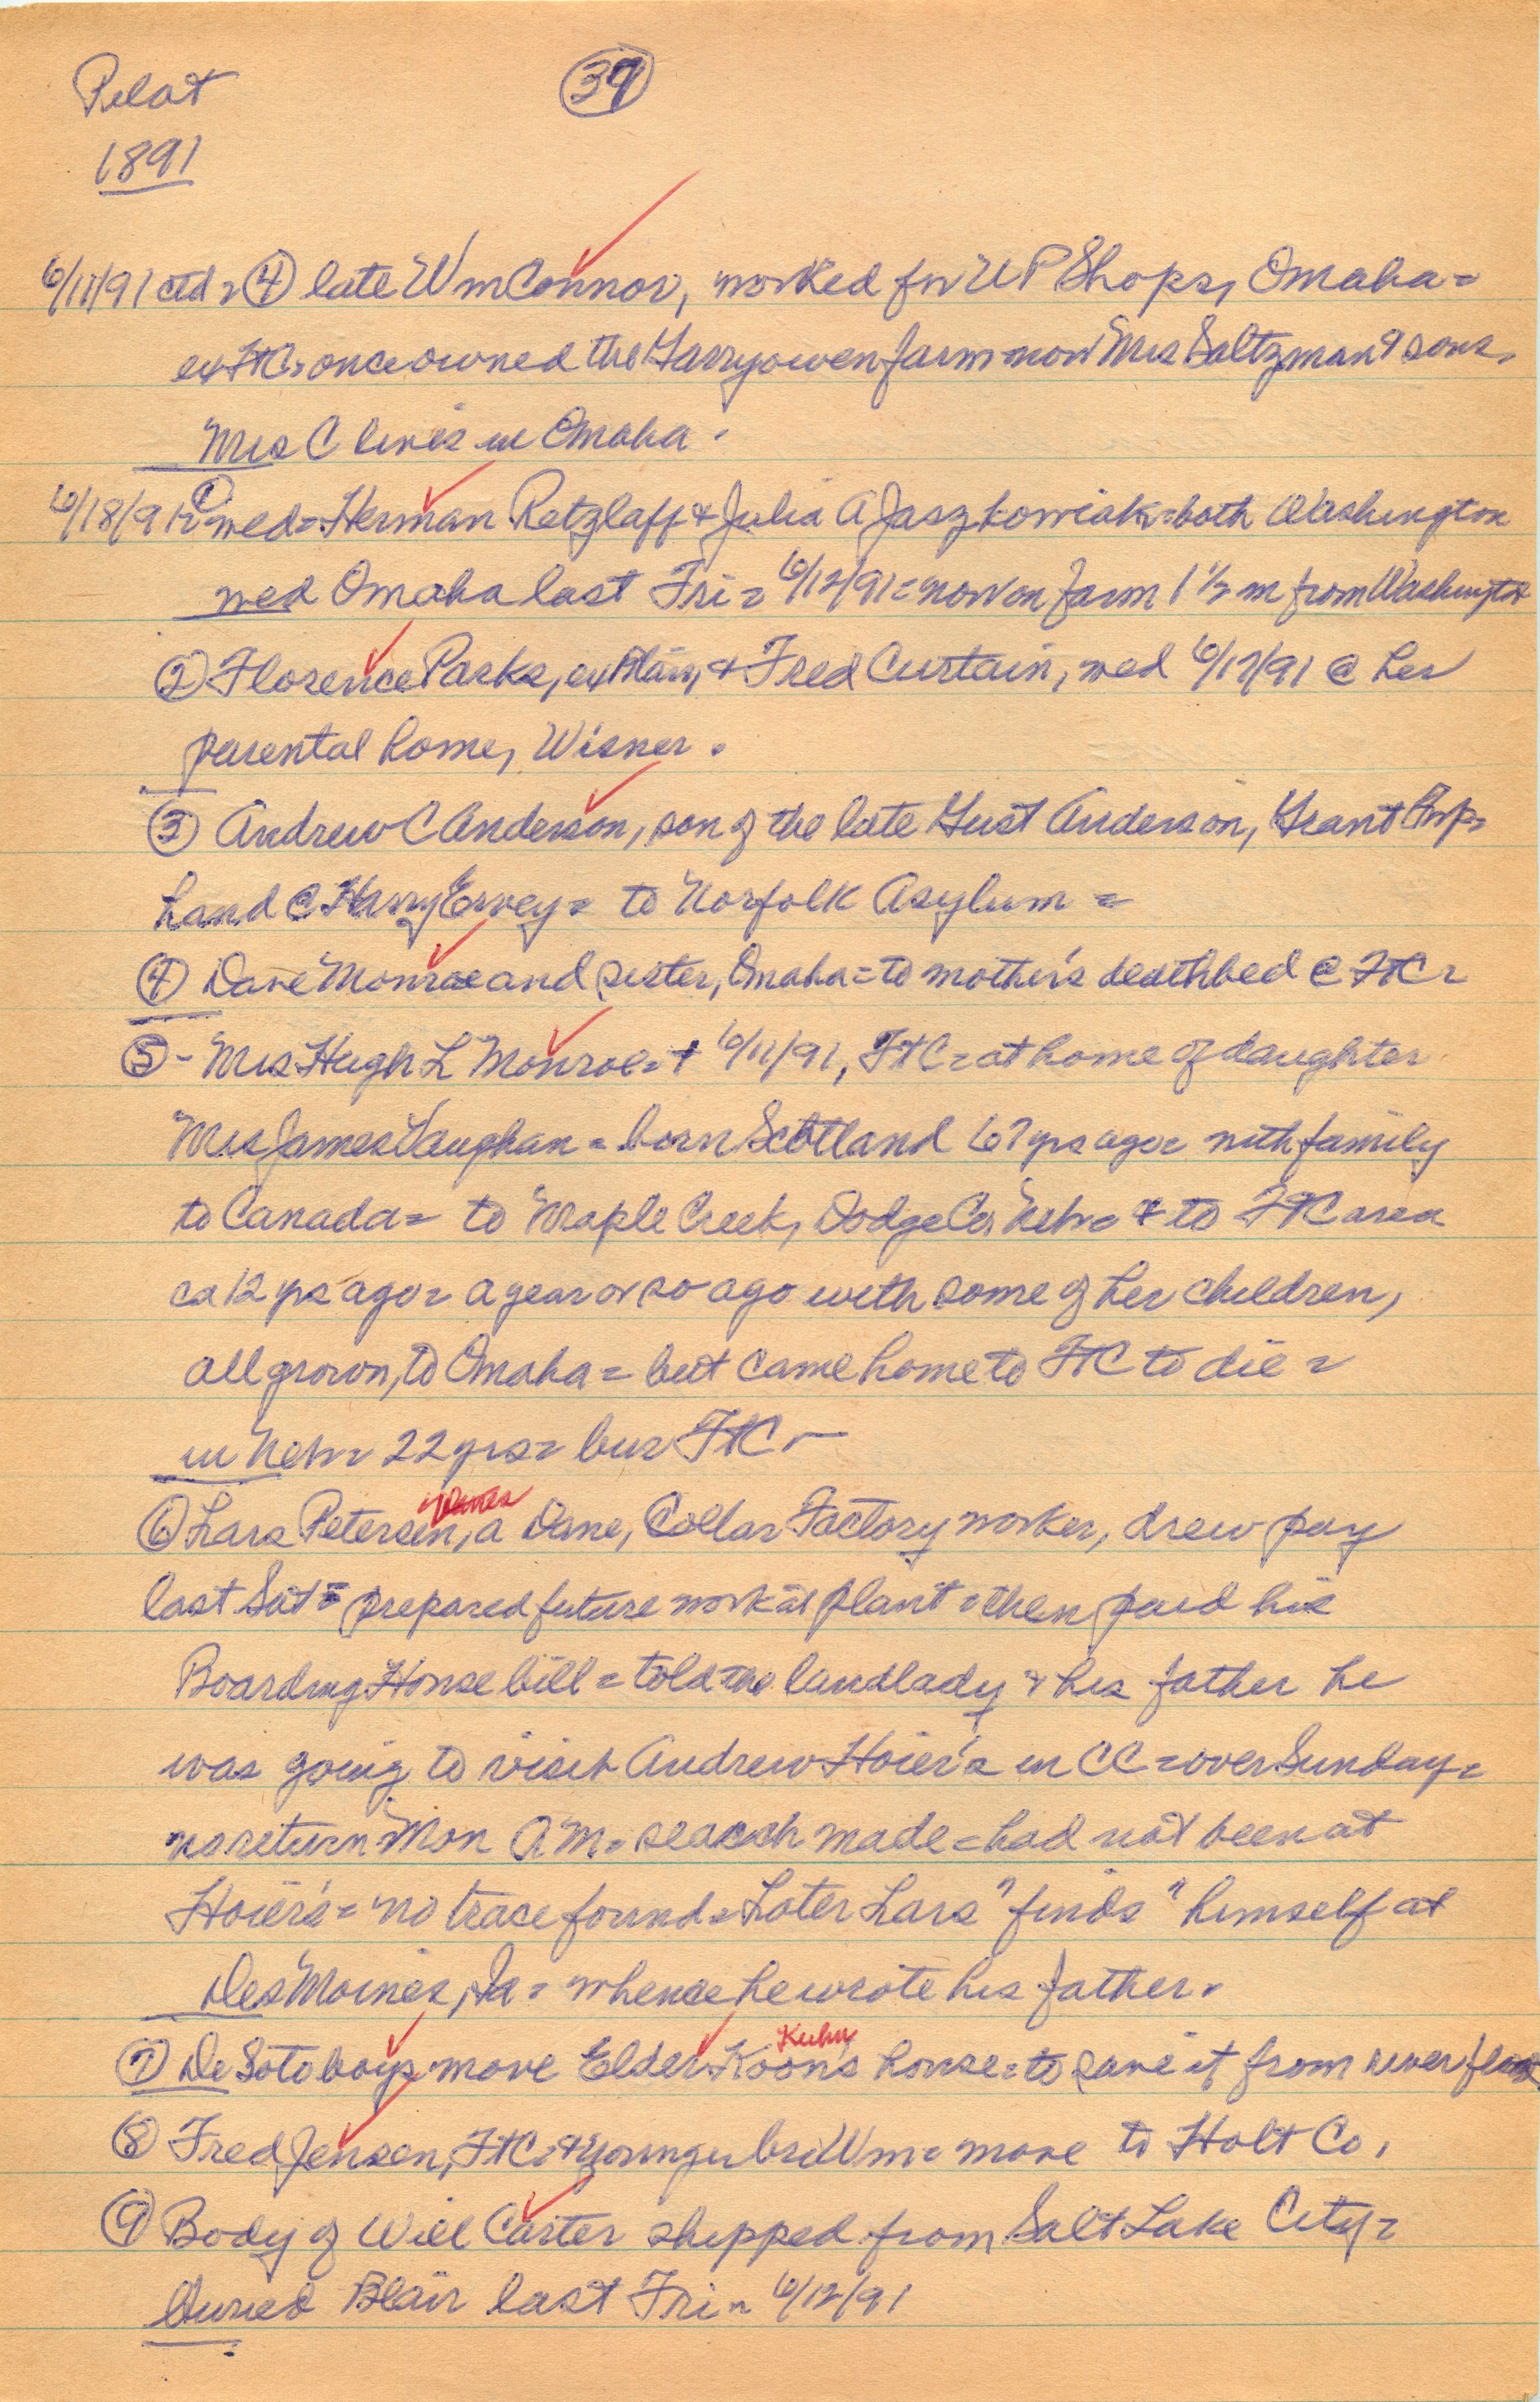 Pilot
37
1891
6/11/91 ctd = 4 late Wm Connor, worked for UP Shops, Omaha =
ex FtC = once owned the Garryowen farm now Mrs Saltzman & sons.
Mrs C lives in Omaha.
6/18/91 = 1 wed = Herman Retzlaff & Julia A Jaszkowiak = both Washington
wed Omaha last Fri = 6/12/91 = now on farm 1 1/2 m from Washington
2 Florence Parks, ex Blair, & Fred Curtain, wed 6/17/91 @ her
parental home, Wisner.
3 Andrew C Anderson, son of the late Gust Anderson, Grant Twp =
hand @ Harry Ervey = to Norfolk Asylum =
4 Dave Monroe and sister, Omaha = to mother's deathbed @ FtC =
5 - Mrs Hugh L Monroe = † 6/11/91, FtC = at home of daughter
Mrs James Vaughan = born Scotland 67 yrs ago = with family
to Canada = to Maple Creek, Dodge Co, Nebr = & to FtC area
ca 12 yrs ago = a year or so ago with some of her children,
all grown, to Omaha = but came home to FtC to die =
in Nebr = 22 yrs = bur FtC -
6 Lars Petersen, a Dane, Collar Factory worker, drew pay
last Sat = prepared future work at plant = then paid his
Boarding House bill = told the landlady & his father he
was going to visit Andrew Hoier's in CC = over Sunday =
no return Mon AM = search made = had not been at
Hoier's = no trace found = Later Lars "finds" himself at
Des Moines, Ia = whence he wrote his father.
Kuhn
7 De Soto boys move Elder Koon's house = to save it from river flood
8 Fred Jensen, FtC = & younger bro Wm = move to Holt Co.
9 Body of Will Carter shipped from Salt Lake City =
buried Blair last Fri = 6/12/91